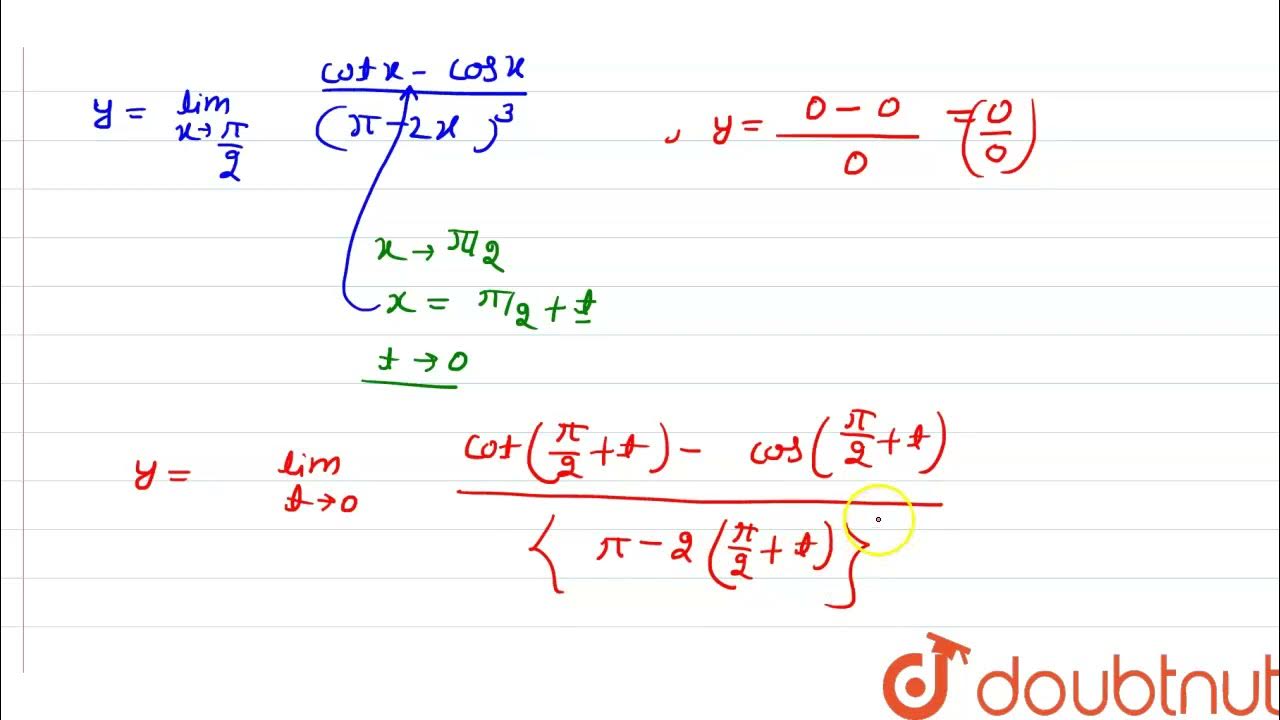 y = lim x→π/2 (cot x - cos x)/(π-2x)^3 , y = (0-0)/0 = (0/0)
x → π/2
x = π/2 + t
t → 0
y = lim t→0 (cot(π/2 + t) - cos(π/2 + t))/{π - 2(π/2 + t)}
doubtnut